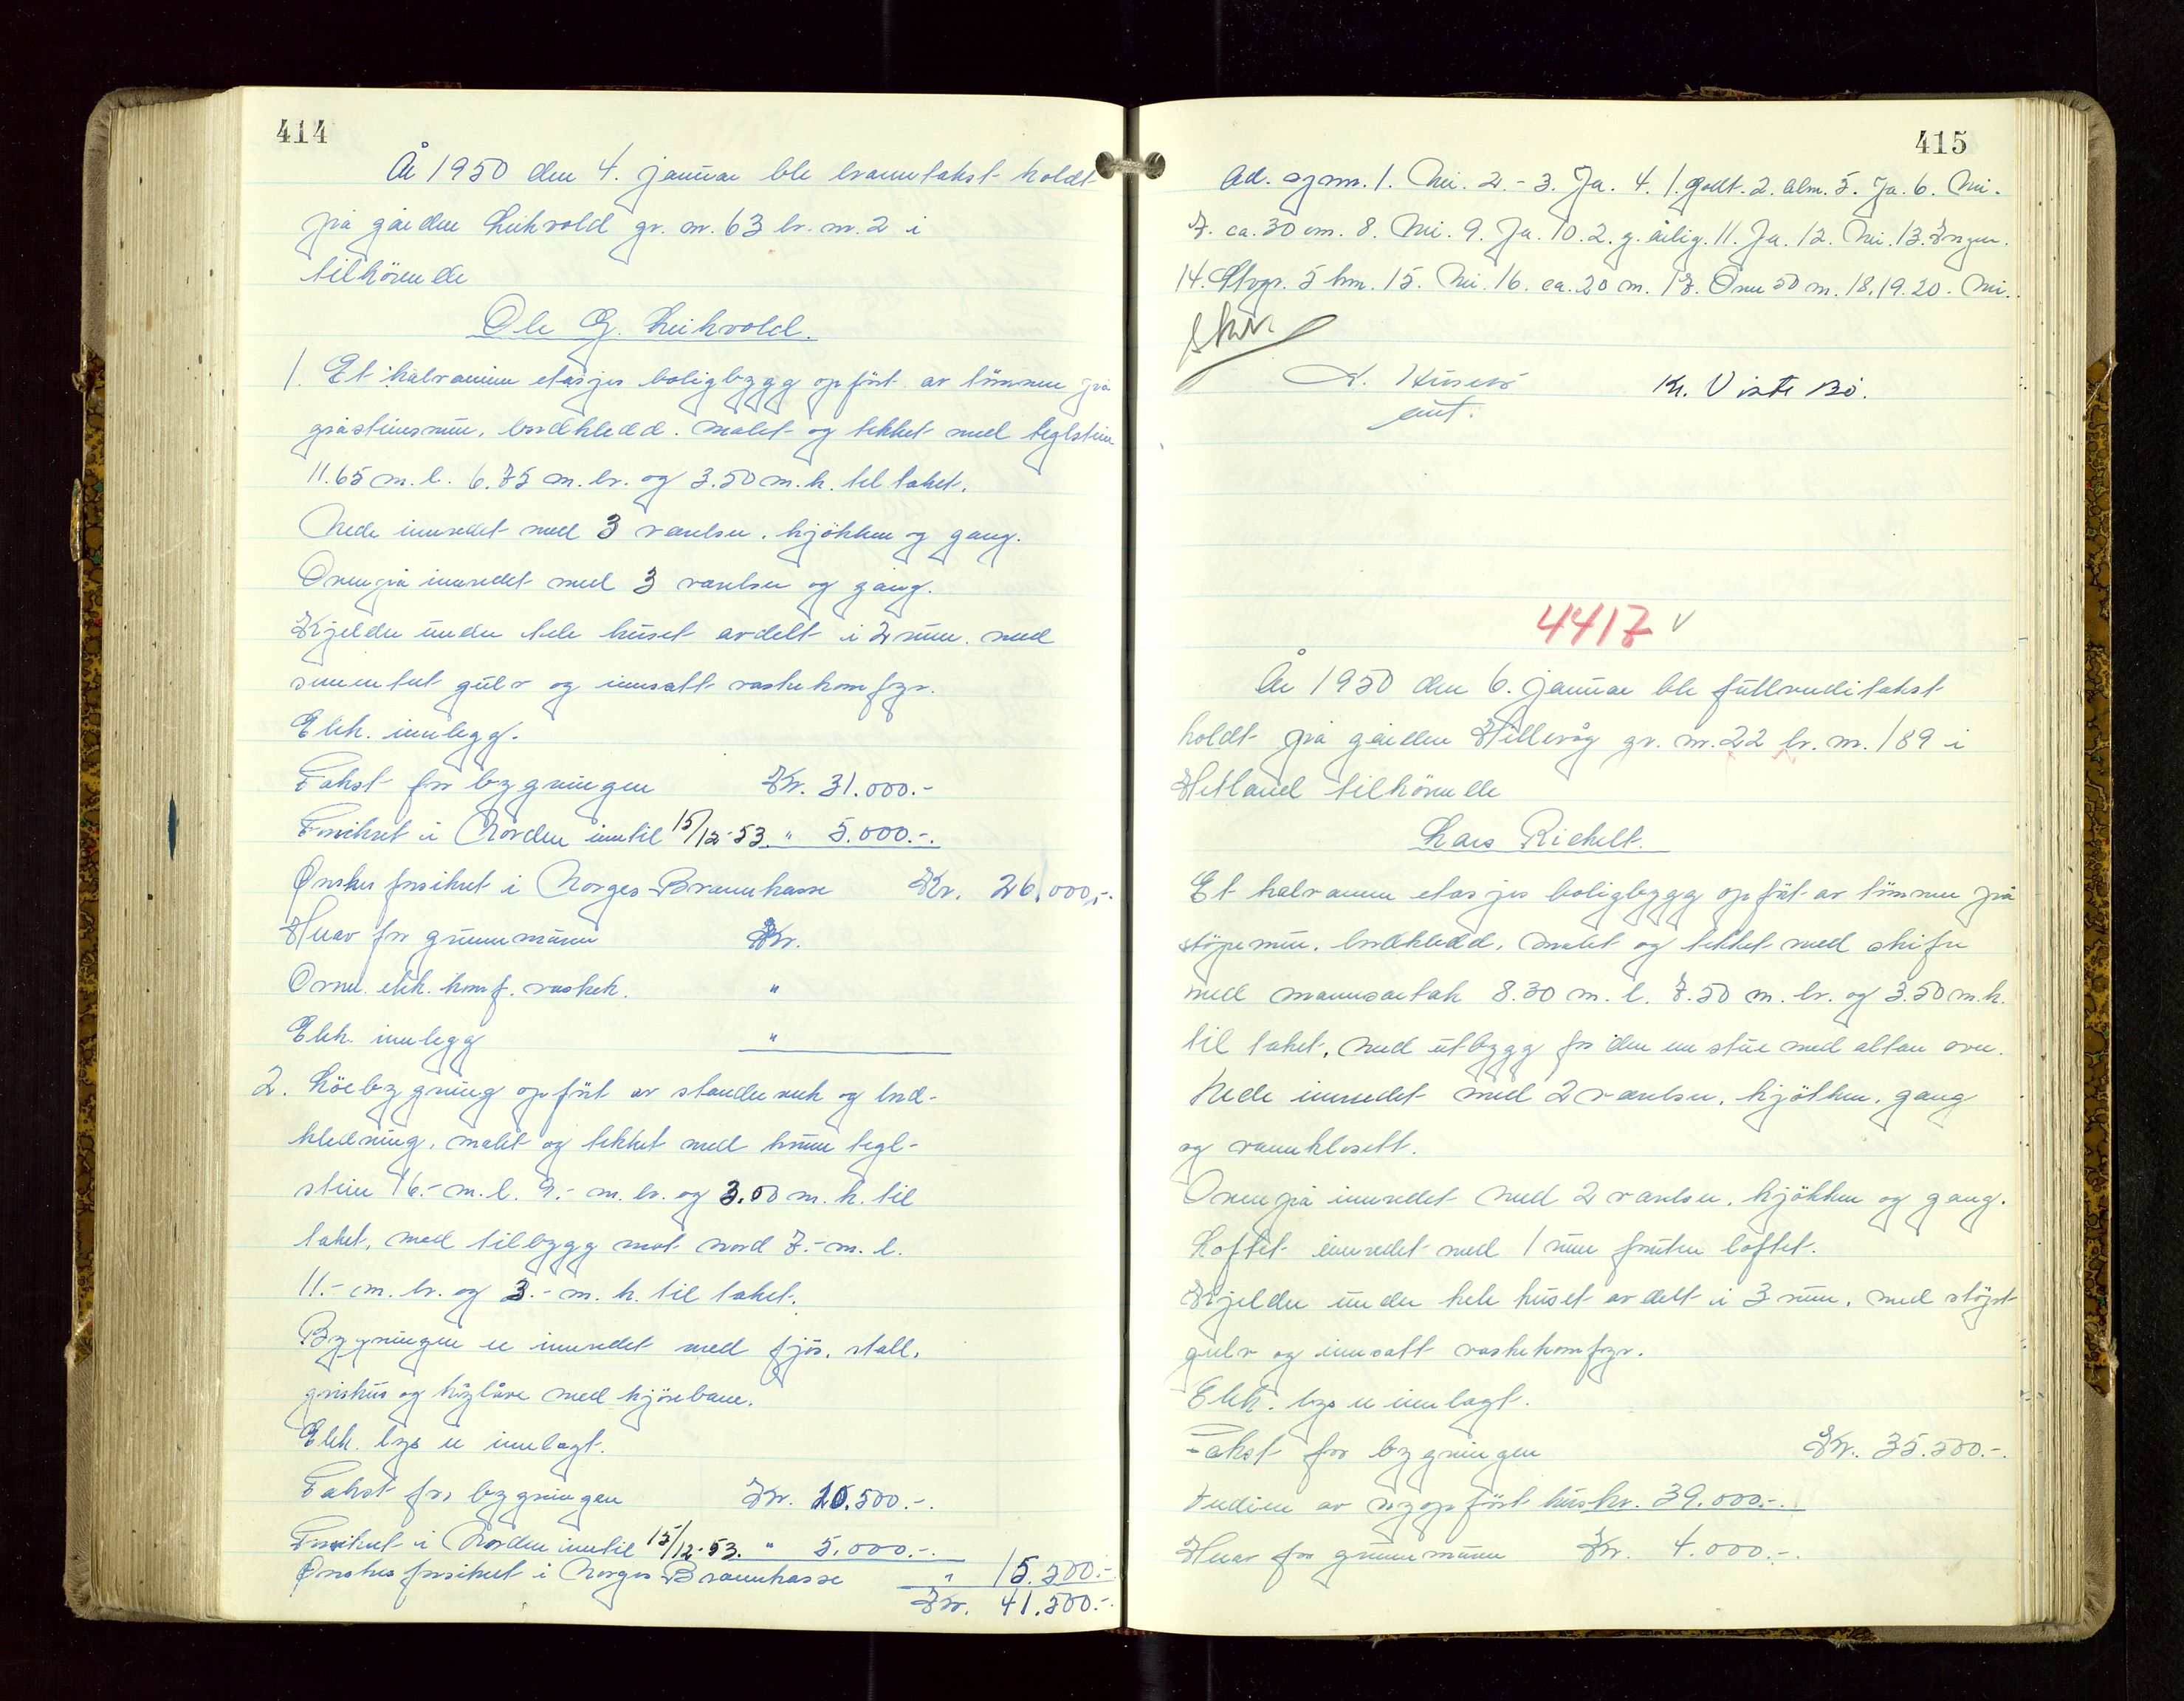 414
År 1950 den 4. januar ble branntakst holdt
på gården Leikvold gr. nr. 63 br. nr. 2 i
tilhörende
Ole G. Leikvold.
1. Et halvannen etasjes boligbygg opfört av tömmer på
gråstensmur, bordkledd. malet og tekket med teglstein
11.65 m. l. 6.75 m. br. og 3.50 m. h. til taket.
Nede innredet med 3 værelser, kjökken og gang.
Ovenpå innredet med 3 værelser og gang.
Kjelder under hele huset avdelt i 2 rum. med
sementert gulv og innsatt vaskekomfyr.
Elek. innlegg.
Takst for bygningen Kr. 31.000.-
Forsikret i Norden inntil 15/12-53. " 5.000.-.
Ønskes forsikret i Norges Brannkasse Kr. 26.000,-.
Herav for grunnmuren Kr.
Ovner. elek. komf. vaskek. "
Elek. innlegg "
2. Löebygning opfört av standerverk og bord-
kledning, malet og tekket med krum tegl-
stein 16.- m. l. 9.- m. br. og 3.00 m. h. til
taket, med tilbygg mot nord 7.- m. l.
11.- m. br. og 3.- m. h. til taket.
Bygningen er innredet med fjös, stall,
grishus og höylåve med kjörebane.
Elek. lys er innlagt.
Takst for bygningen Kr. 20.500.-.
Forsikret i Norden inntil 15/12-53. " 5.000.-.
Ønskes forsikret i Norges Brannkasse " 15.500.-
Kr. 41.500.-.
415
Ad. spm. 1. Nei. 2.- 3. Ja. 4. 1. godt. 2. alm. 5. Ja. 6. Nei.
7. ca. 30 cm. 8. Nei. 9. Ja. 10. 2. g. årlig. 11. Ja. 12. Nei. 13. Ingen.
14. Stvgr. 5 km. 15. Nei. 16. ca. 20 m. 17. Over 50 m. 18. 19. 20. Nei.
Skr.
Kr. Viste Bö.
4417 v
År 1950 den 6. januar ble fullverditakst
holdt på gården Hillevåg gr. nr. 22 br. nr. 189 i
Hetland tilhörende
Lars Richelt.
Et halvannen etasjes boligbygg opfört av tömmer på
stöpemur, bordkledd, malet og tekket med skifer
med mansartak 8.30 m. l. 7.50 m. br. og 3.50 m. h.
til taket, med utbygg for den ene stue med altan over.
Nede innredet med 2 værelser, kjökken, gang
og vannklosett.
Ovenpå innredet med 2 værelser, kjökken og gang.
Loftet innredet med 1 rum foruten loftet.
Kjelder under hele huset avdelt i 3 rum, med stöpt
gulv og innsatt vaskekomfyr.
Elek. lys er innlagt.
Takst for bygningen Kr. 35.500.-.
Verdien av nyopfört hus kr. 39.000.-.
Herav for grunnmuren Kr. 4.000.-.